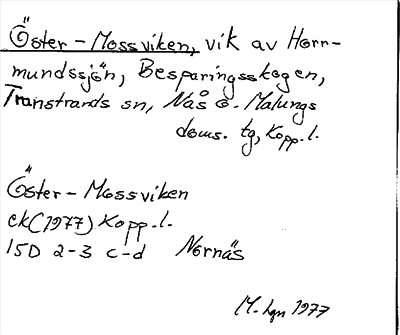 Öster-Mossviken, vik av Horr-
mundssjön, Besparingsskogen,
Transtrands sn, Nås o. Malungs
doms. tg, Kopp. l.
Öster-Mossviken
ek (1977) Kopp. l.
15D 2-3 c-d Nornäs
M. hgn 1977